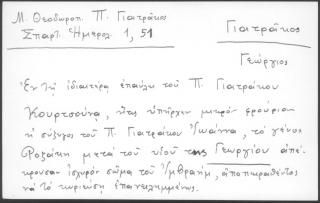 Μ. Θεοδωροπ. Π. Γιατράκος
Σπαρτ. Ἡμερολ. 1, 51
Γιατράκος
Γεώργιος
Ἐν τῇ ἰδιαιτέρᾳ ἐπαύλει τοῦ Π. Γιατράκου
Κουρτσούνα, ἥτις ὑπῆρχεν μικρόν φρούριον
ἡ σύζυγος τοῦ Π. Γιατράκου Ἰωάννα, τό γένος
Ροζάκη μετά τοῦ υἱοῦ της Γεωργίου ἀπέ-
κρουσαν ἰσχυρόν σῶμα τοῦ Ἰμβραήμ, ἀποπειραθέντος
νά τό κυριεύσῃ ἐπανειλημμένως.